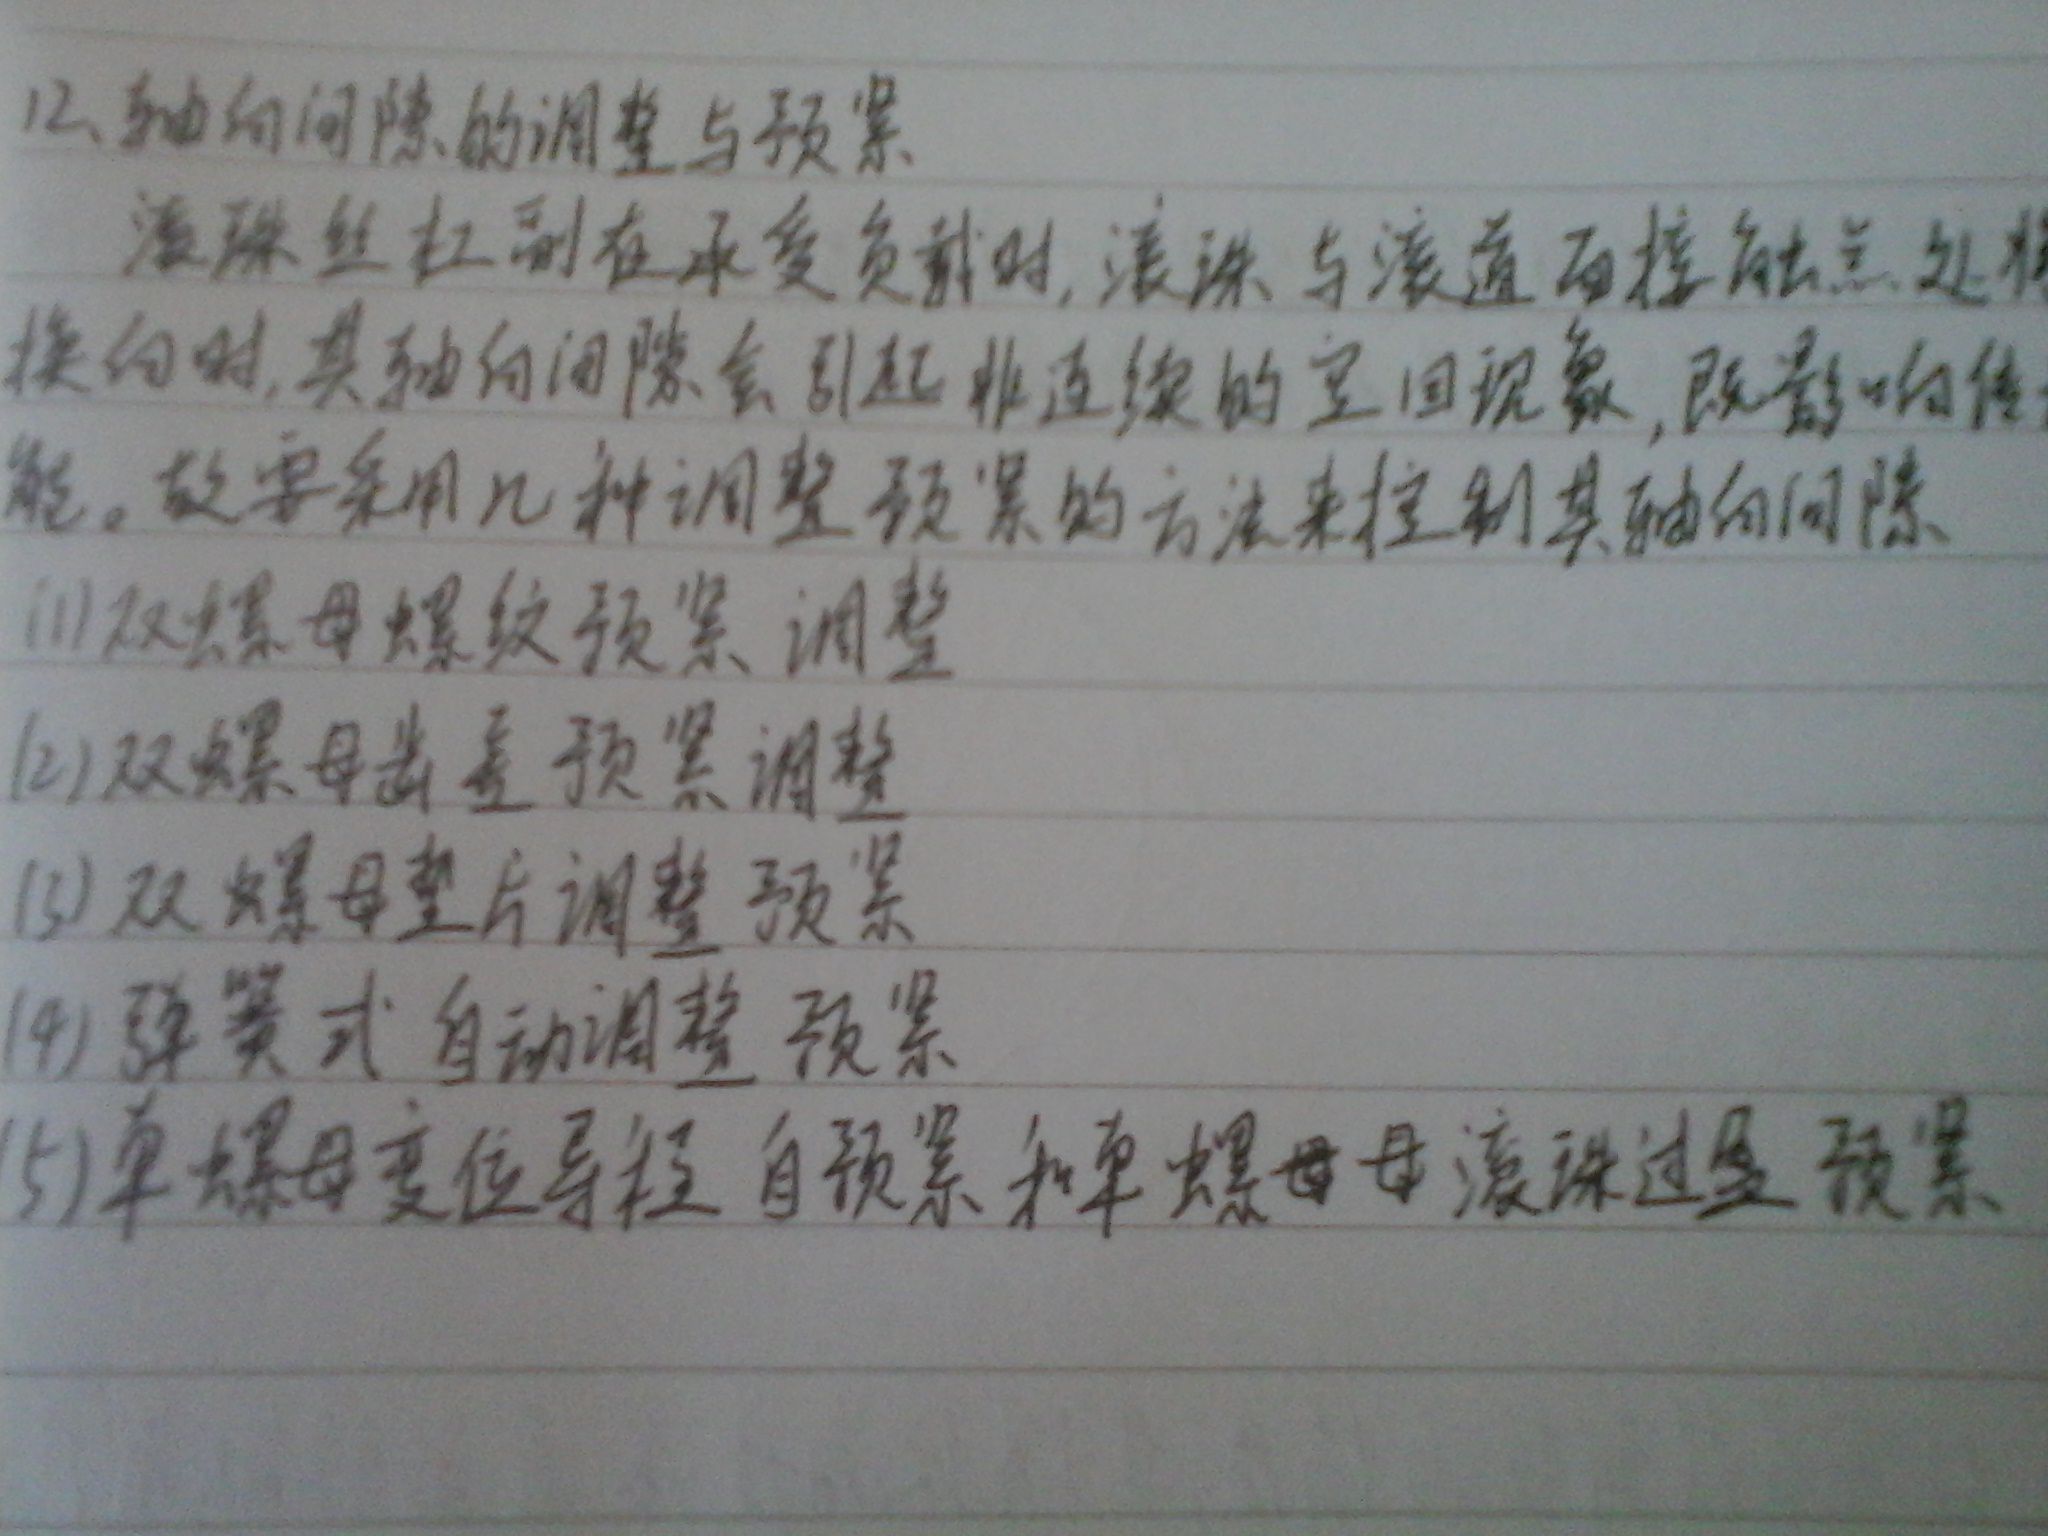 12、轴向间隙的调整与预紧
滚珠丝杠副在承受负载时,滚珠与滚道面接触点处
换向时,其轴向间隙会引起非连续的空回现象,既影响传
能。故要采用几种调整预紧的方法来控制其轴向间隙
(1)双螺母螺纹预紧调整
(2)双螺母齿差预紧调整
(3)双螺母垫片调整预紧
(4)弹簧式自动调整预紧
(5)单螺母变位导程自预紧和单螺母母滚珠过盈预紧